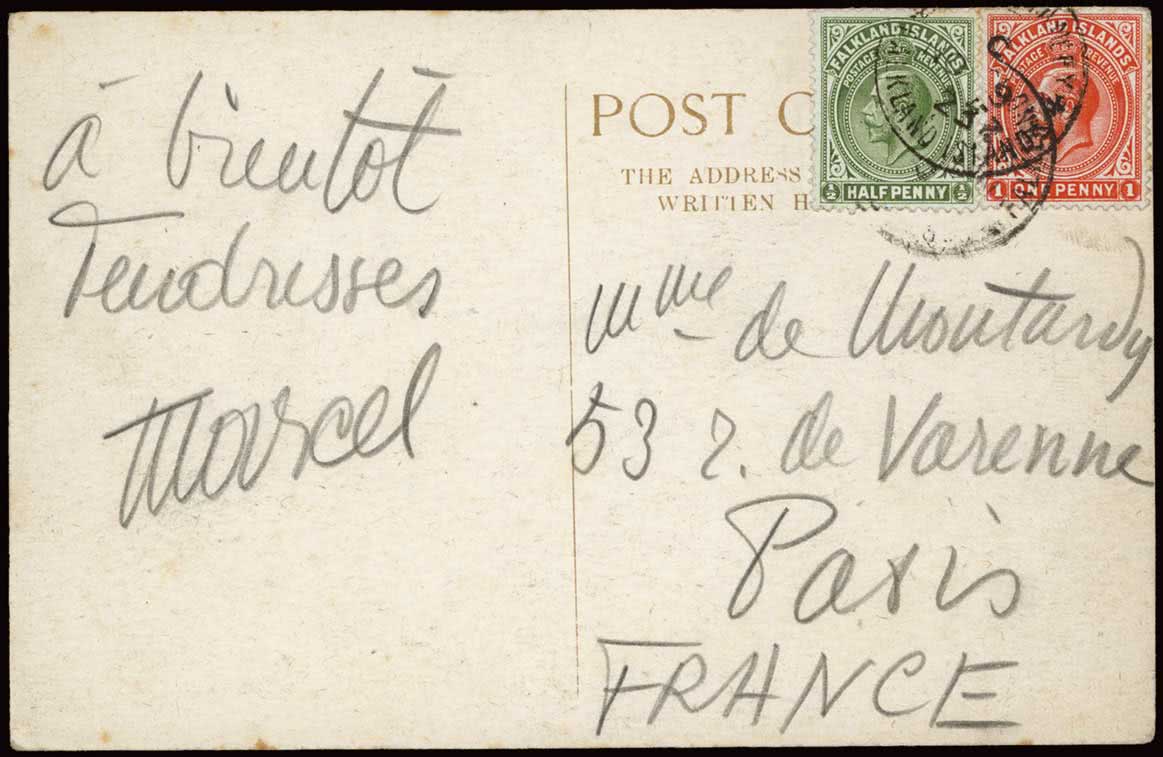 à bientôt
Tendresses
Marcel
POST C
THE ADDRESS
WRITTEN H
FALKLAND ISLANDS
POSTAGE REVENUE
½ HALFPENNY ½
FALKLAND ISLANDS
POSTAGE REVENUE
1 ONE PENNY 1
Mme de Montardy
53 r. de Varenne
Paris
FRANCE